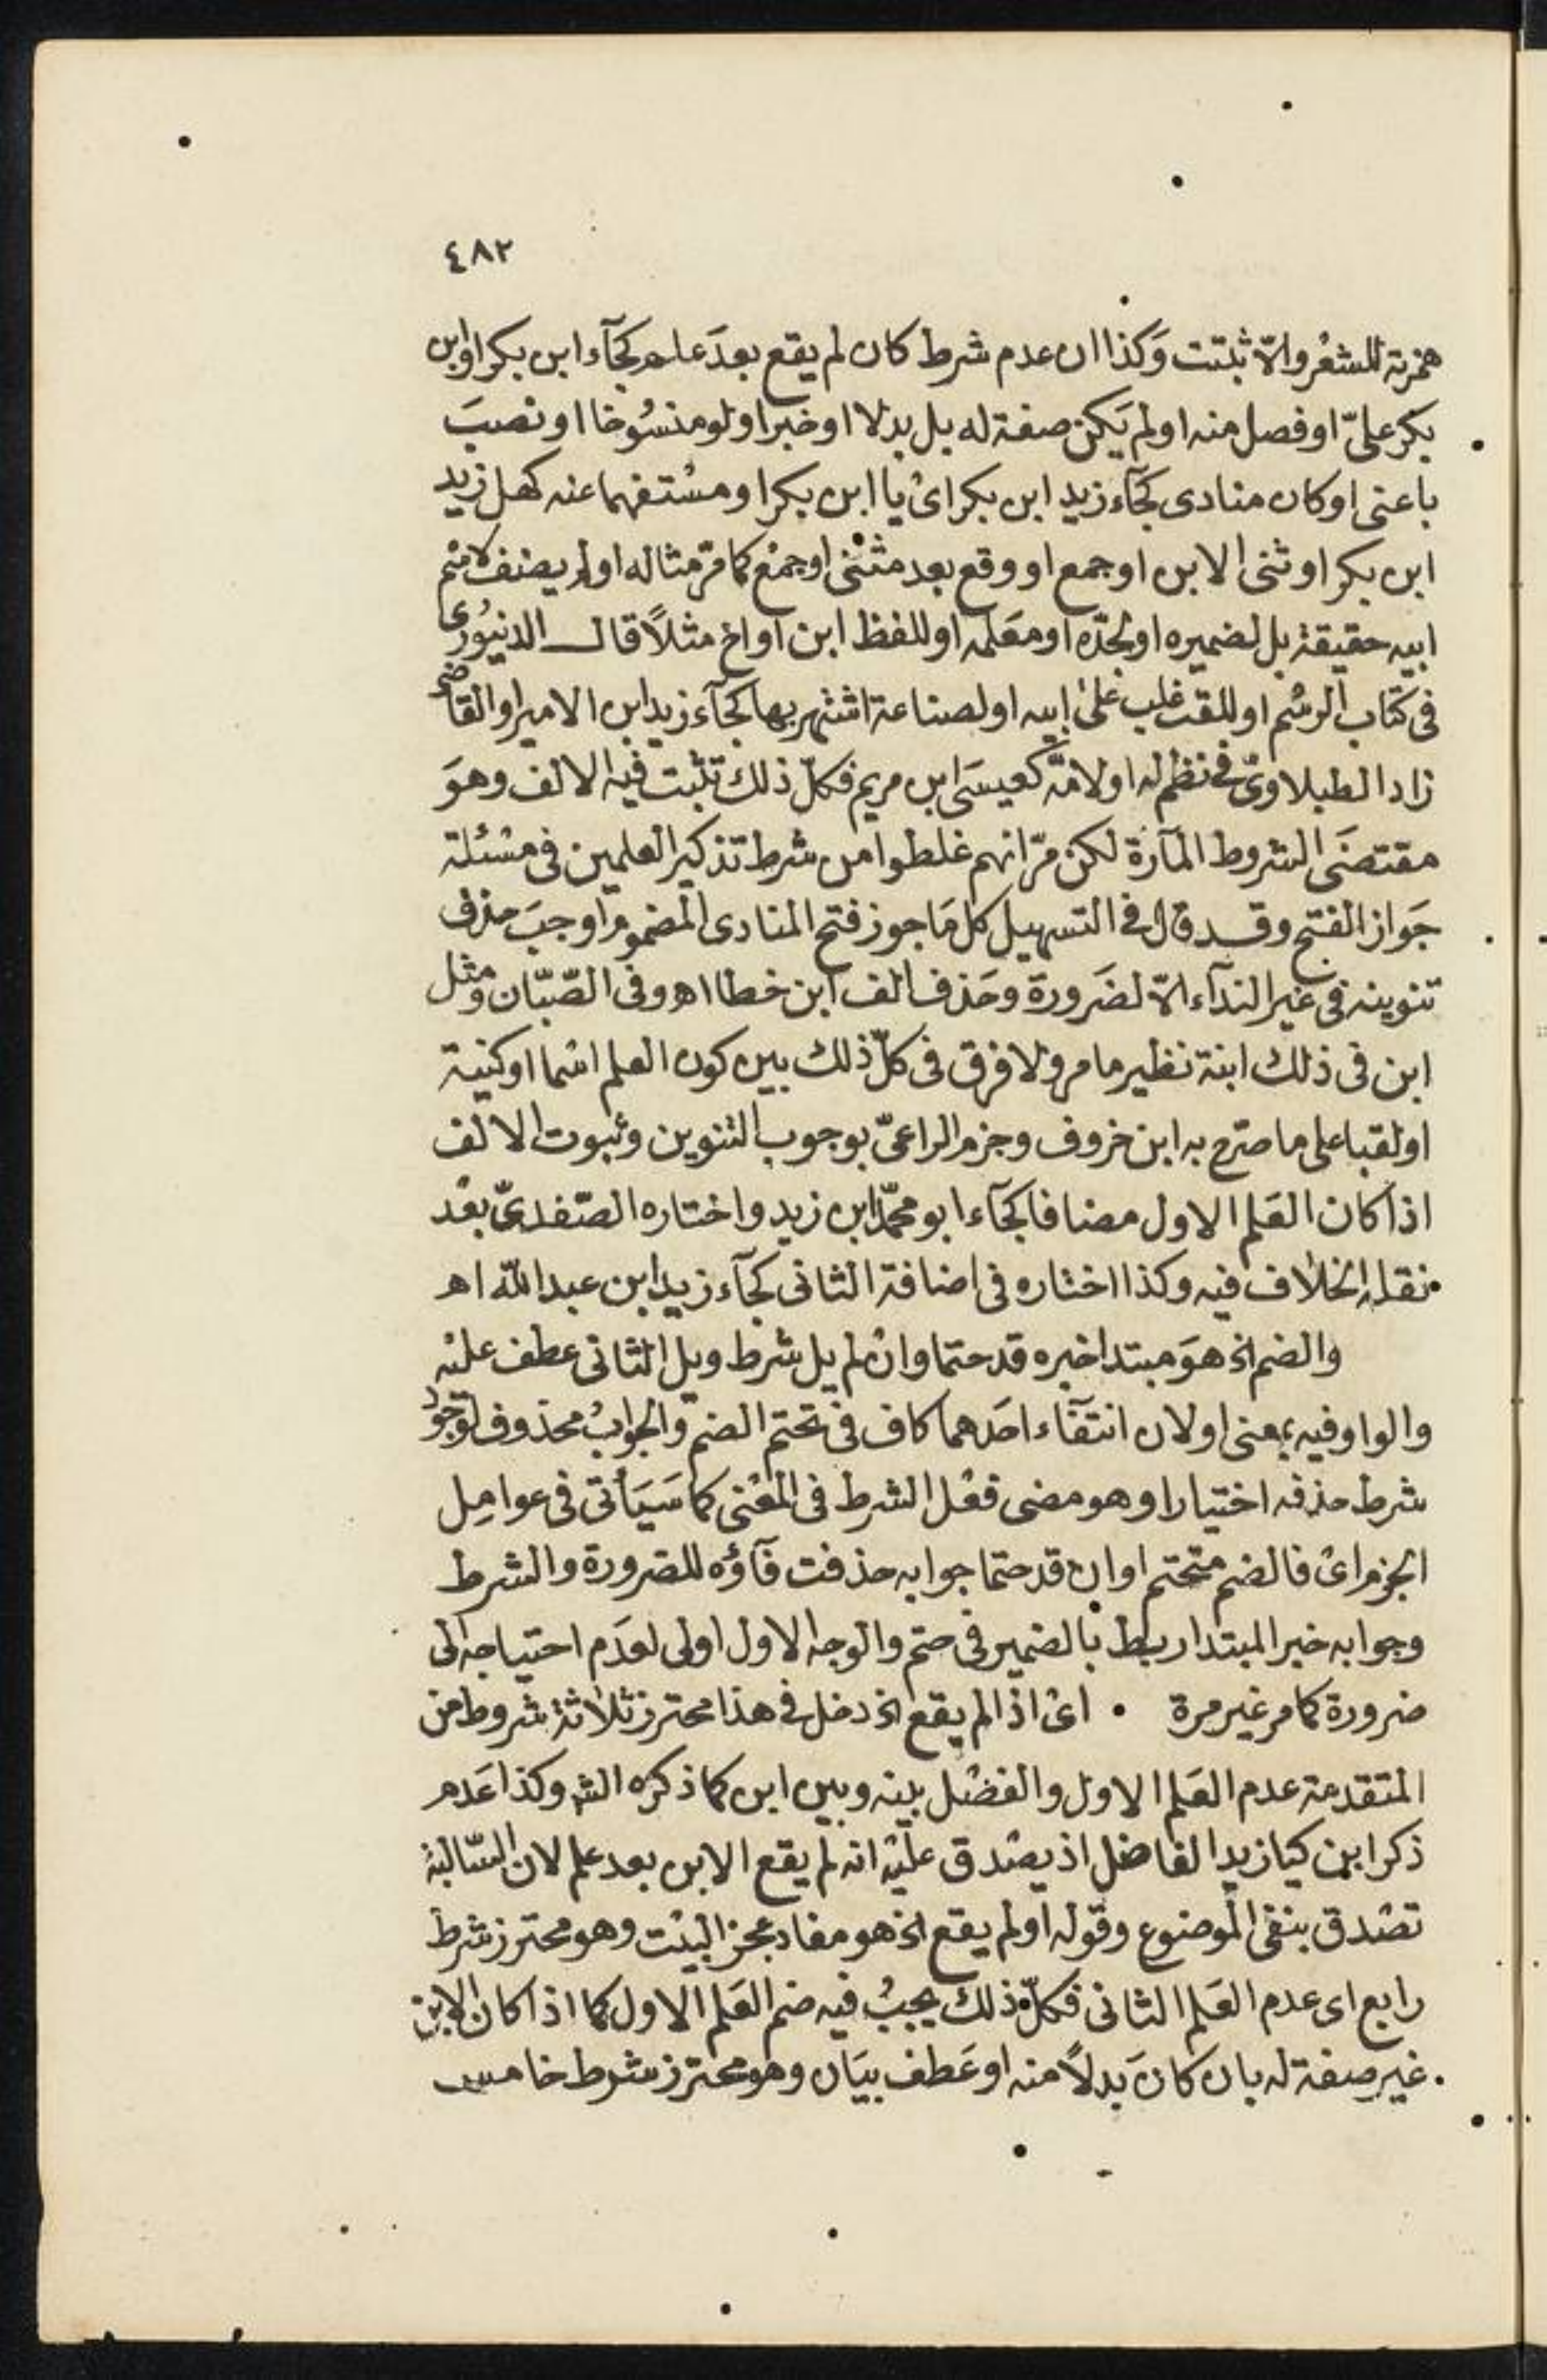 ٤٨٢
همزته للشعر والّا ثبتت وَكذا ان عدم شرط كان لم يقع بعدَ علم كجآء ابن بكر او ابن
بكر علىّ او فصل منه او لم يَكن صفة له بل بدلا او خبرا ولو منسُوخا او نصبَ
باعنى او كان منادى كجآء زيد ابن بكر اىْ يا ابن بكر او مسْتفهما عنه كهل زيد
ابن بكر او ثنى الابن او جمع او وقع بعد مثنْى او جمْع كما مرّ مثاله او لم يضف لاسْم
ابيه حقيقة بل لضميره او لجدّه او معَلمه او للفظ ابن او اخ مثلاً قال الدنيوُرى
فى كتاب الرسْم او للقب غلب علىْ ابيه او لصناعة اشتهر بها كجآء زيد ابن الامير او القاضى
زاد الطبلاوىّ فى نظم له او لامّه كعيسَى ابن مريم فكلّ ذلك تثبت فيْه الالف وهوَ
مقتضَى الشروط المآرة لكن مرّ انهم غلطوا من شرط تذكير العلمين فى مسْئلة
جَواز الفتح وقد قال فى التسهيل كل مَا جوز فتح المنادى المضموم اوجبَ حذف
تنوينه فى غير الندآء الّا لضَرورة وحَذف الف ابن خطا اهـ وفى الصّبّان ومثل
ابن فى ذلك ابنة نظير ما مر ولا فرق فى كلّ ذلك بين كون العلم اسْما او كنية
او لقبا على ما صرّح به ابن خروف وجزم الراعىّ بوجوب التنوين وثبوت الالف
اذا كان العَلم الاول مضافا كجآء ابو محمّد ابن زيد واختاره الصّفدىّ بعْد
نقله الخلاف فيه وكذا اختاره فى اضافة الثانى كجآء زيد ابن عبد اللّه اهـ
والضم الخ هوَ مبتدا خبره قد حتما وانْ لم يل شرط ويل الثانى عطف عليْه
والواو فيه بمعنى او لان انتفآء احَدهما كاف فى تحتم الضمّ والجوابُ محذوف لوجوُد
شرط حذفه اختيارا وهو مضى فعْل الشرط فى المعْنى كما سَيَأتى فى عوامِل
الجزم اىْ فالضم متحتم او ان قد حتما جوابه حذفت فآؤه للضرورة والشرط
وجوابه خبر المبتدا ربط بالضمير فى حتم والوجه الاول اولى لعدَم احتياجه الى
ضرورة كما مر غير مرة • اىْ اذا لم يقع الخ دخل فى هذا محترز ثلاثة شروط من
المتقدمة عدم العَلم الاول والفصْل بينه وبين ابن كما ذكره الش وكذا عَدم
ذكر ابن كيا زيد الفاضل اذ يصْدق عليْه انه لم يقع الابن بعد علم لان السّالبة
تصْدق بنفى الموضوع وقوله او لم يقع الخ هو مفاد عجز البيْت وهو محترز شرط
رابع اى عدم العَلم الثانى فكلّ ذلك يجبُ فيه ضم العَلم الاول كما اذا كان الابن
غير صفة له بان كانَ بَدلاً منه او عَطف بيَان وهو محترز شرط خامس